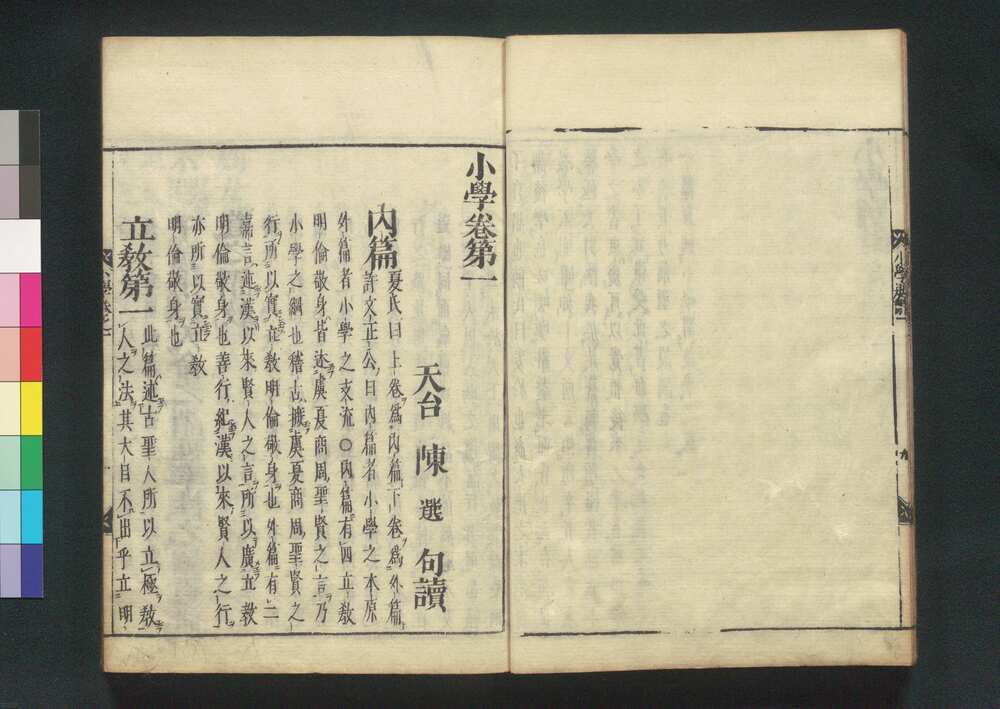 小學卷第一
天台 陳 選 句讀
內篇
夏氏曰上卷爲內篇下卷爲外篇
許文正公曰內篇者小學之本原
外篇者小學之支流〇內篇有四立敎
明倫敬身皆述虞夏商周聖賢之言乃
小學之綱也稽古摭虞夏商周聖賢之
行所以實立敎明倫敬身也外篇有二
嘉言述漢以來賢人之言所以廣立敎
明倫敬身也善行紀漢以來賢人之行
亦所以實立敎
明倫敬身也
立敎第一
此篇述古聖人所以立極敎
人之法其大目不出乎立明